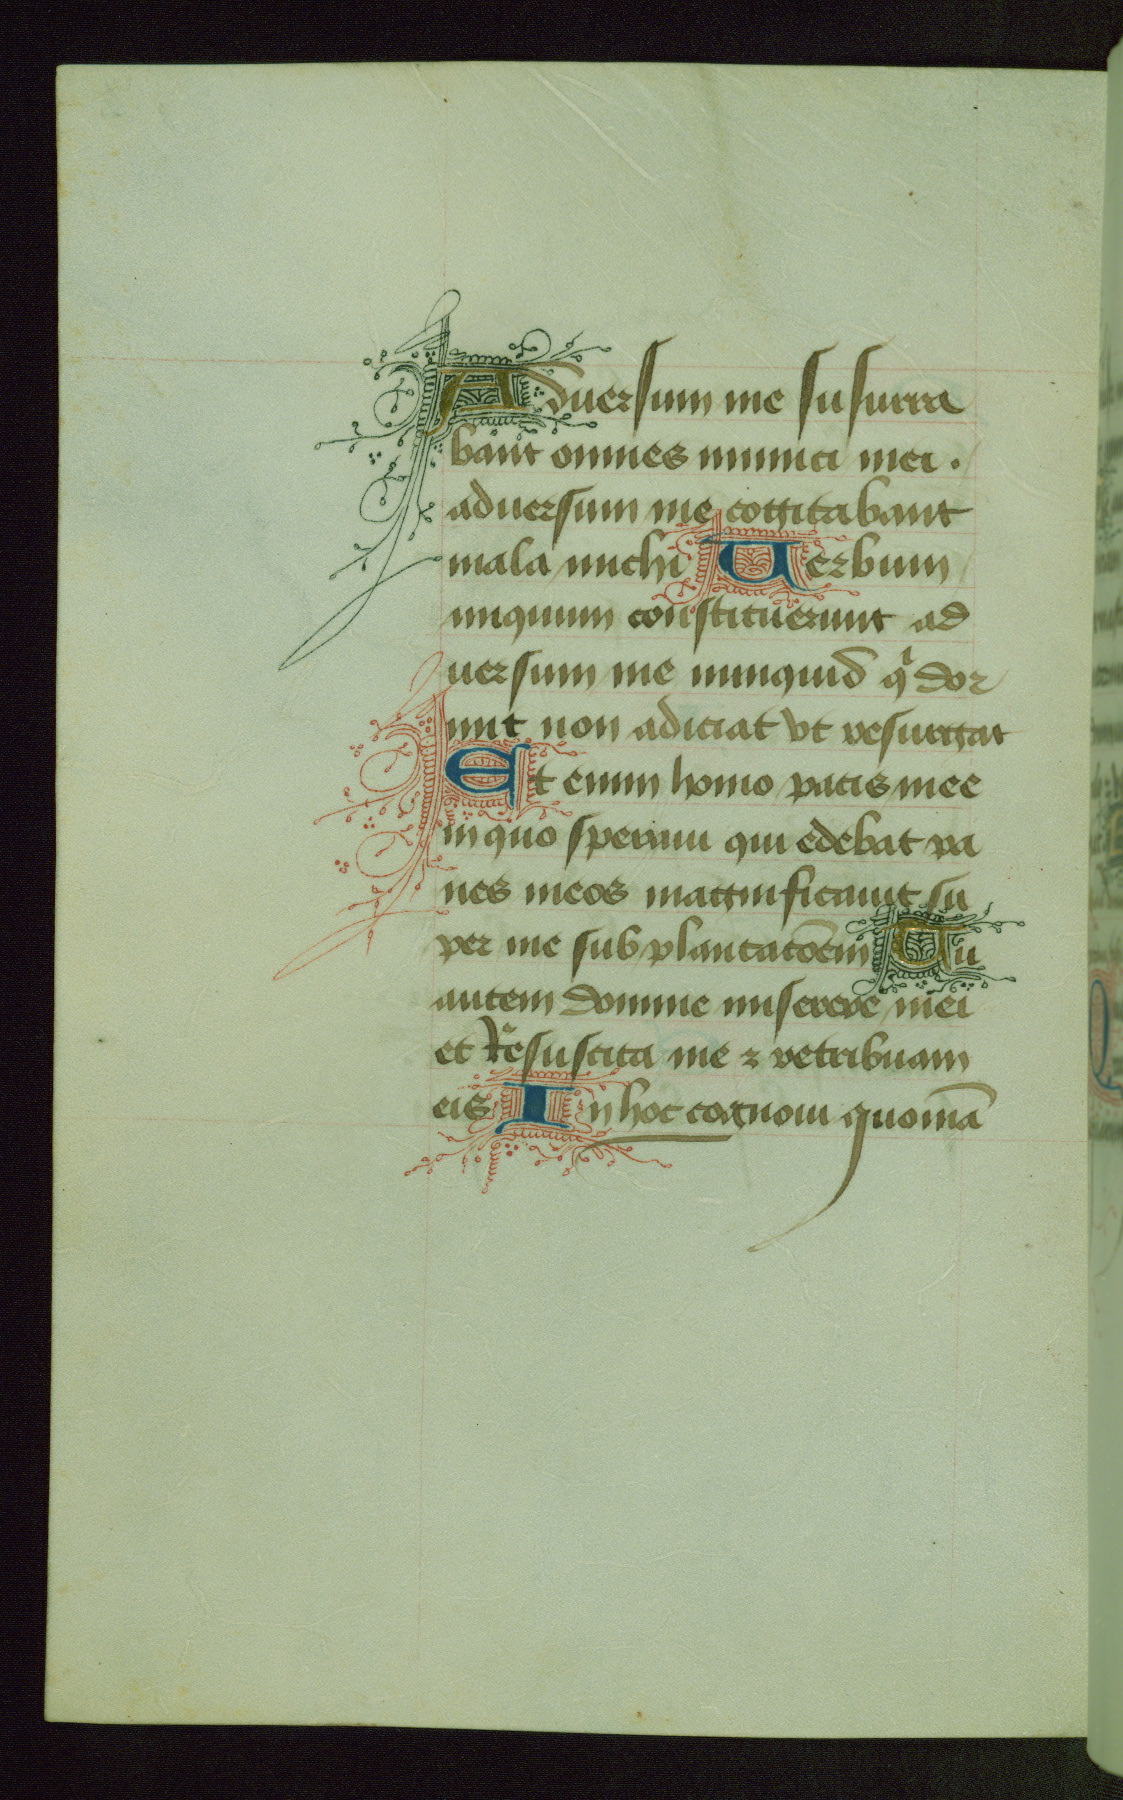 Aduersum me susurra
bant omnes inimici mei .
aduersum me cogitabant
mala michi Uerbum
iniquum constituerunt ad
uersum me nunquid qͥ dor
mit non adiciat vt resurgat
Et enim homo pacis mee
in quo speraui qui edebat pa
nes meos magnificauit su
per me subplantacōem Tu
autem domine miserere mei
et Resuscita me ⁊ retribuam
eis In hoc cognoui quoniā